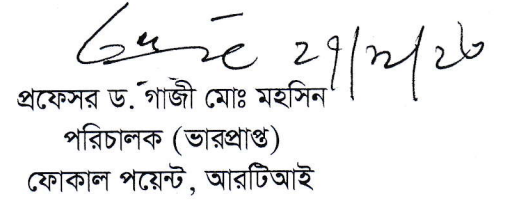 প্রফেসর ড. গাজী মোঃ মহসিন
পরিচালক (ভারপ্রাপ্ত)
ফোকাল পয়েন্ট, আরটিআই